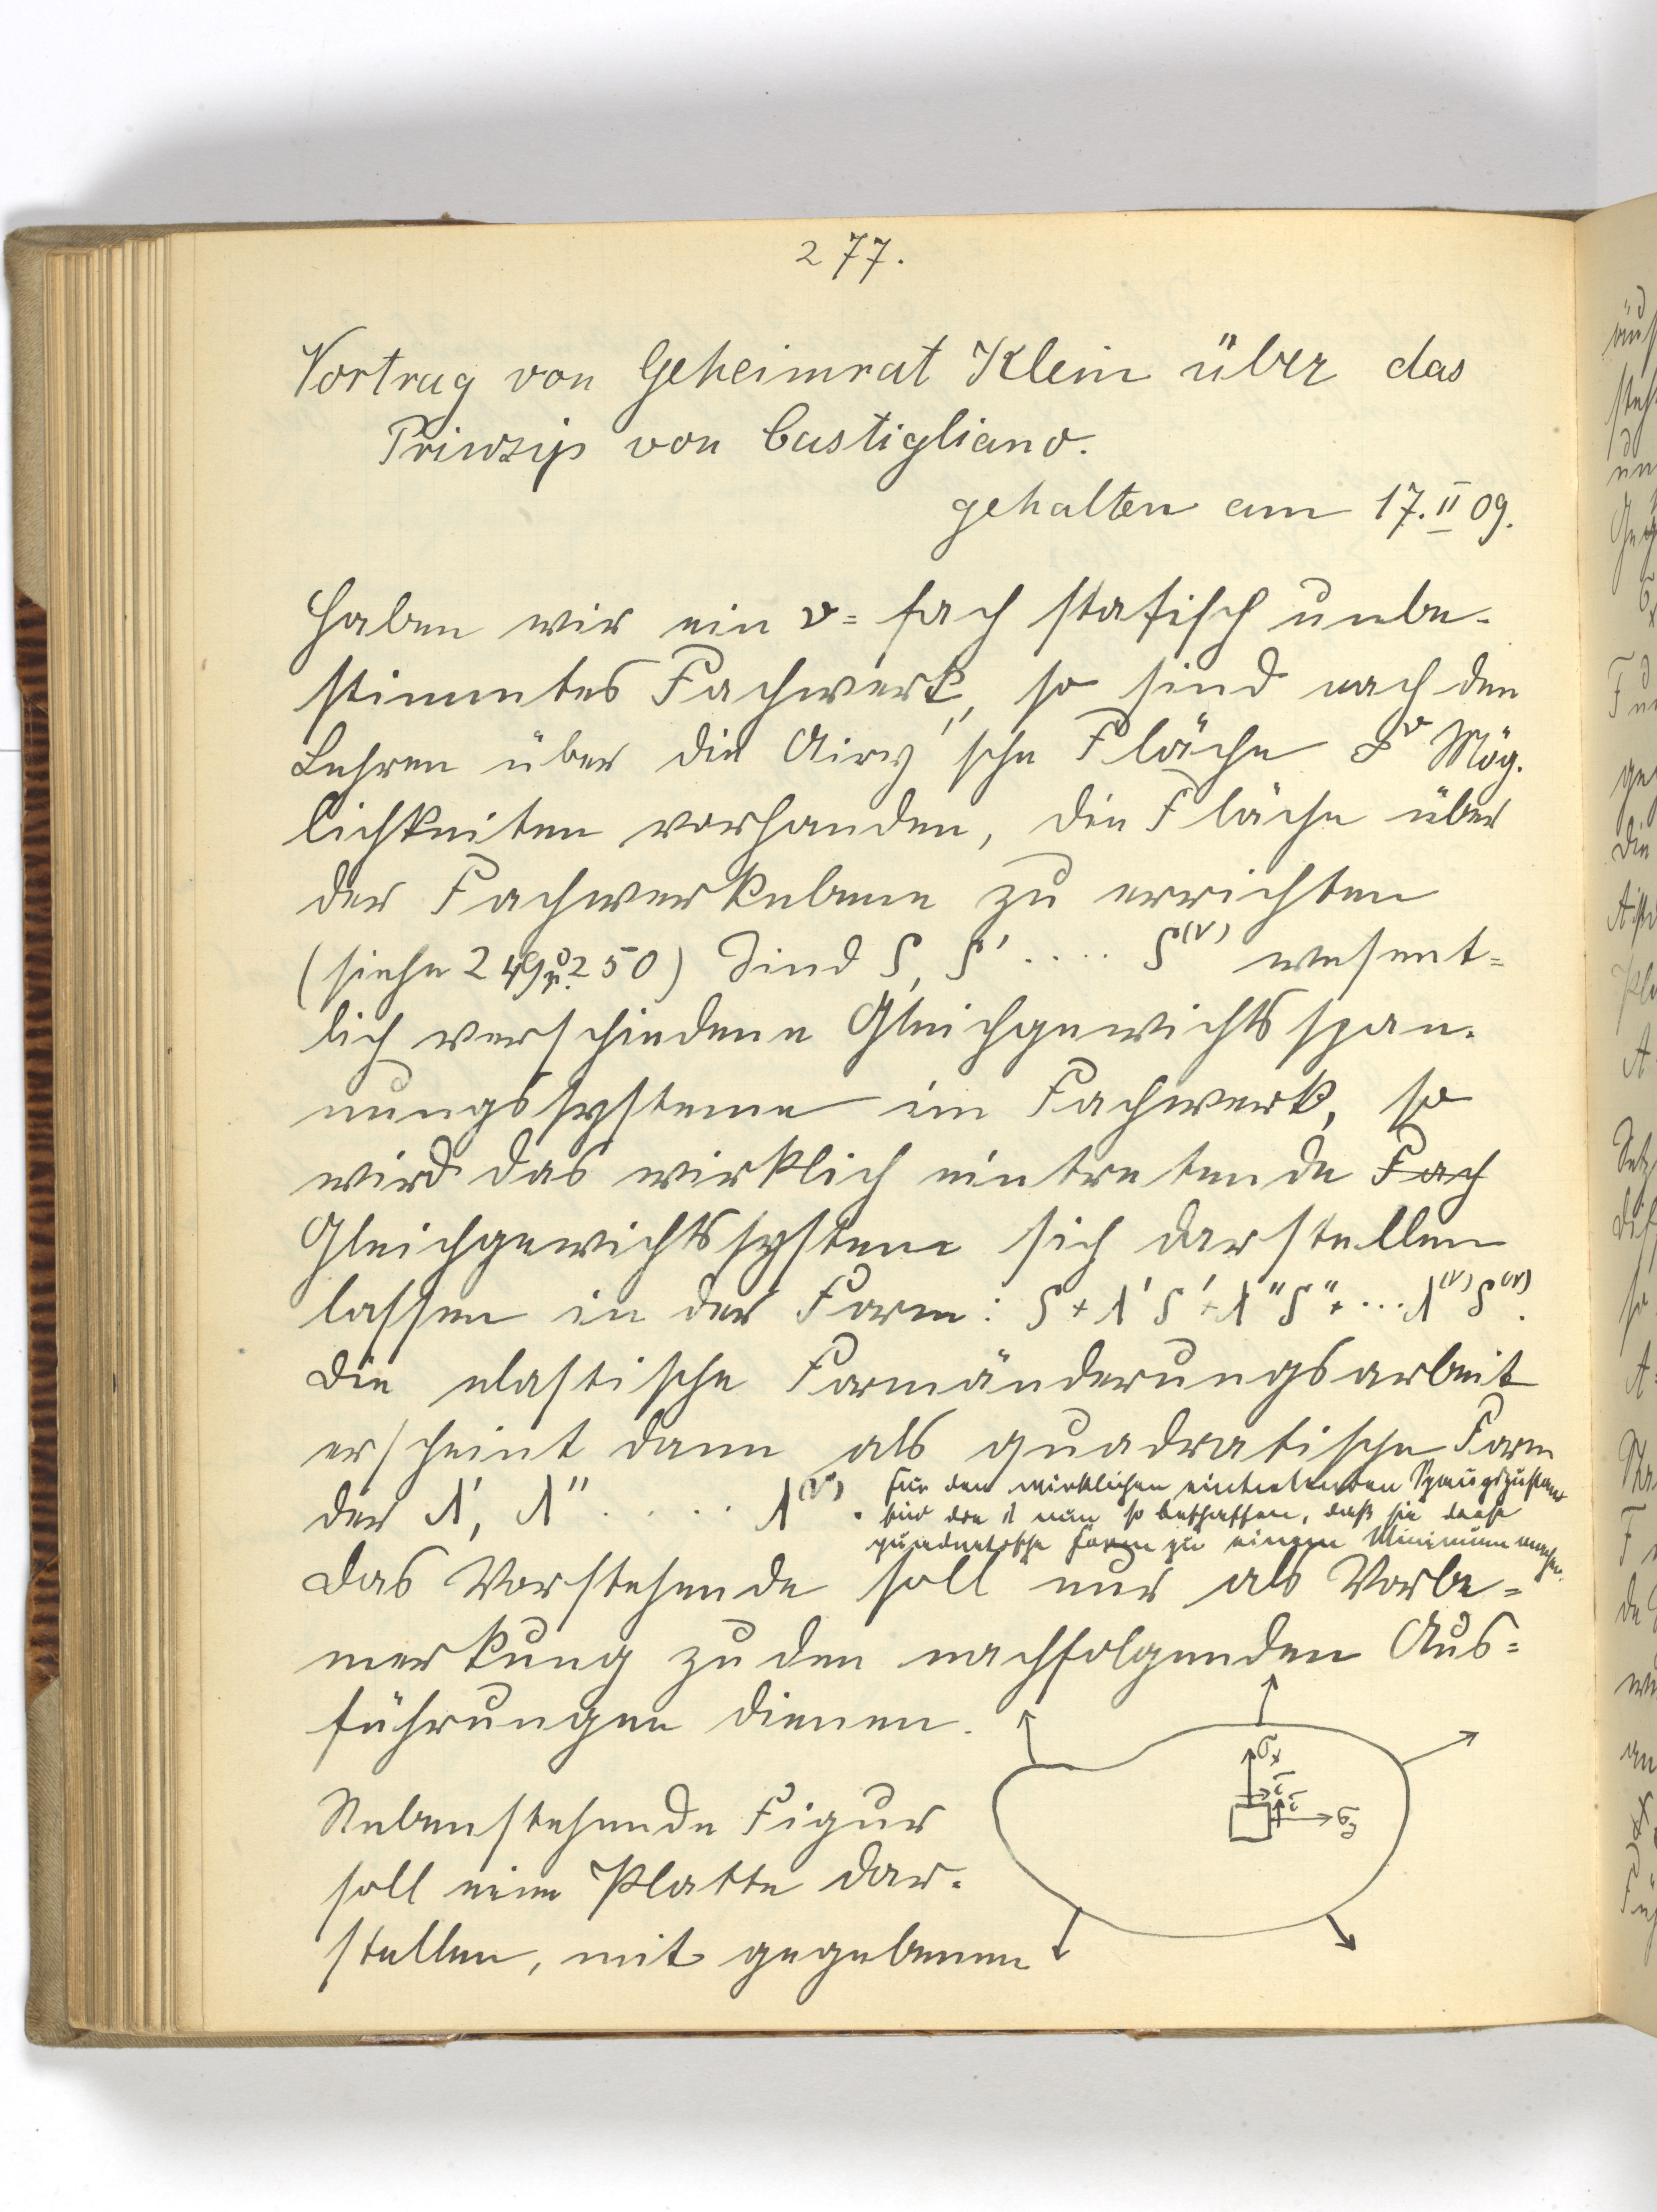 277.
Vortrag von Geheimrat Klein über das
Prinzip von Castigliano.
gehalten am 17. II 09.
Haben wir ein ν = fach statisch unbe-
stimmtes Fachwerk, so sind nach den
Lehren über die Airy'sche Fläche ∞^ν Mög-
lichkeiten vorhanden, die Fläche über
der Fachwerkebene zu errichten
(siehe 249 u. 250) Sind S, S' .... S^(ν) wesent=
lich verschiedene Gleichgewichtsspan-
nungssysteme im Fachwerk, so
wird das wirklich eintretende Fach
Gleichgewichtssystem sich darstellen
lassen in der Form: S + λ'S' + λ''S'' + ... λ^(ν)S^(ν).
Die elastische Formänderungsarbeit
erscheint dann als quadratische Form
der λ', λ'' ..... λ^(ν).
Für den wirklichen eintretenden Spanngszustand
sind die λ nun so beschaffen, daß sie diese
quadratische Form zu einem Minimum machen.
Das Vorstehende soll nur als Vorbe=
merkung zu den nachfolgenden Aus=
führungen dienen.
σx
τ
τ
σy
Nebenstehende Figur
soll eine Platte dar-
stellen, mit gegebenen